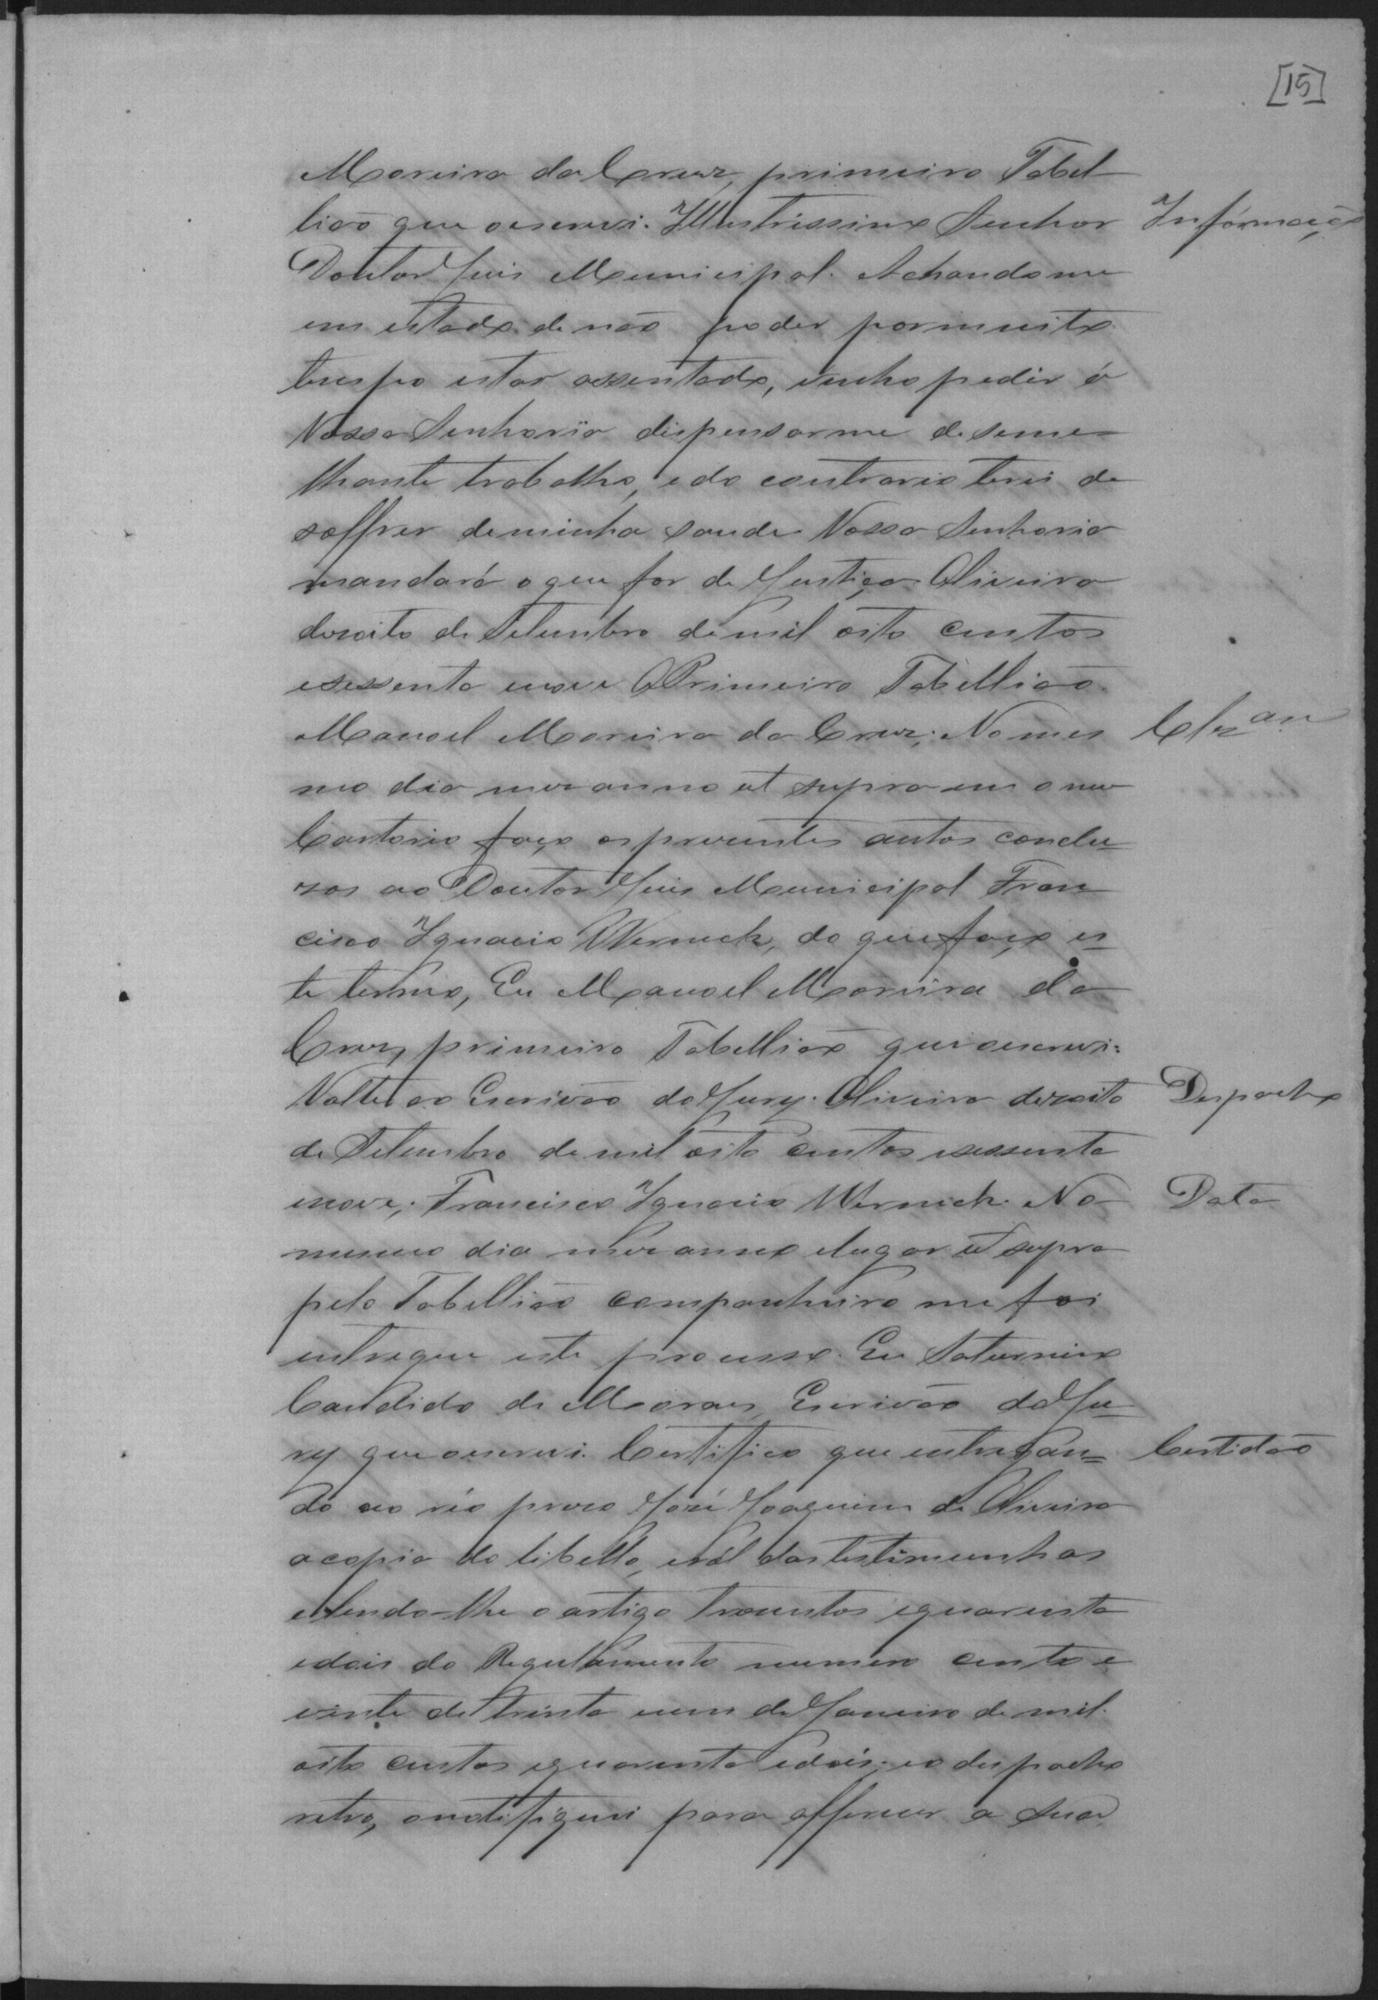 [15]
Moreira da Cruz, primeiro Tabel-
lião que oescrevi. Illustrissimo Senhor
Informação
Doutor Juis Municipal. Achandome
em estado de não poder por muito
tempo estar assentado, venho pedir á
Vossa Senhoria dispensarme de seme-
lhante trabalho, e do contrario terei de
soffrer de minha saude Vossa Senhoria
mandará o que for de Justiça. Oliveira
dezoito de Setembro de mil oito centos
esessenta enove O Primeiro Tabellião
Manoel Moreira da Cruz. No mes
Clzam
mo dia mez anno ut supra em o meu
Cartorio faço os presentes autos conclu=
zos ao Doutor Juis Municipal Fran
cisco Ignacio Werneck, do que faço es
te termo, Eu Manoel Moreira da
Cruz, primeiro Tabellião que oescrevi=
Volte ao Escrivão do Jury. Oliveira dezoito
Despacho
de Setembro de mil oito centos esessenta
enove. Francisco Ignacio Werneck. No
Data
mesmo dia mez anno elugar ut supra
pelo Tabellião companheiro me foi
entregue este processo. Eu Saturnino
Candido de Moraes Escrivão do Ju=
ry que oescrevi. Certifico que entregan=
Certidão
do ao réo prezo José Joaquim de Oliveira
a copia do libello, eról das testimunhas
elendo-lhe o artigo trezentos equarenta
edois do Regulamento numero cento e
vinte de trinta eum de Janeiro de mil
oito centos equarenta edois; eo despacho
retro, onotifiquei para offerecer a sua